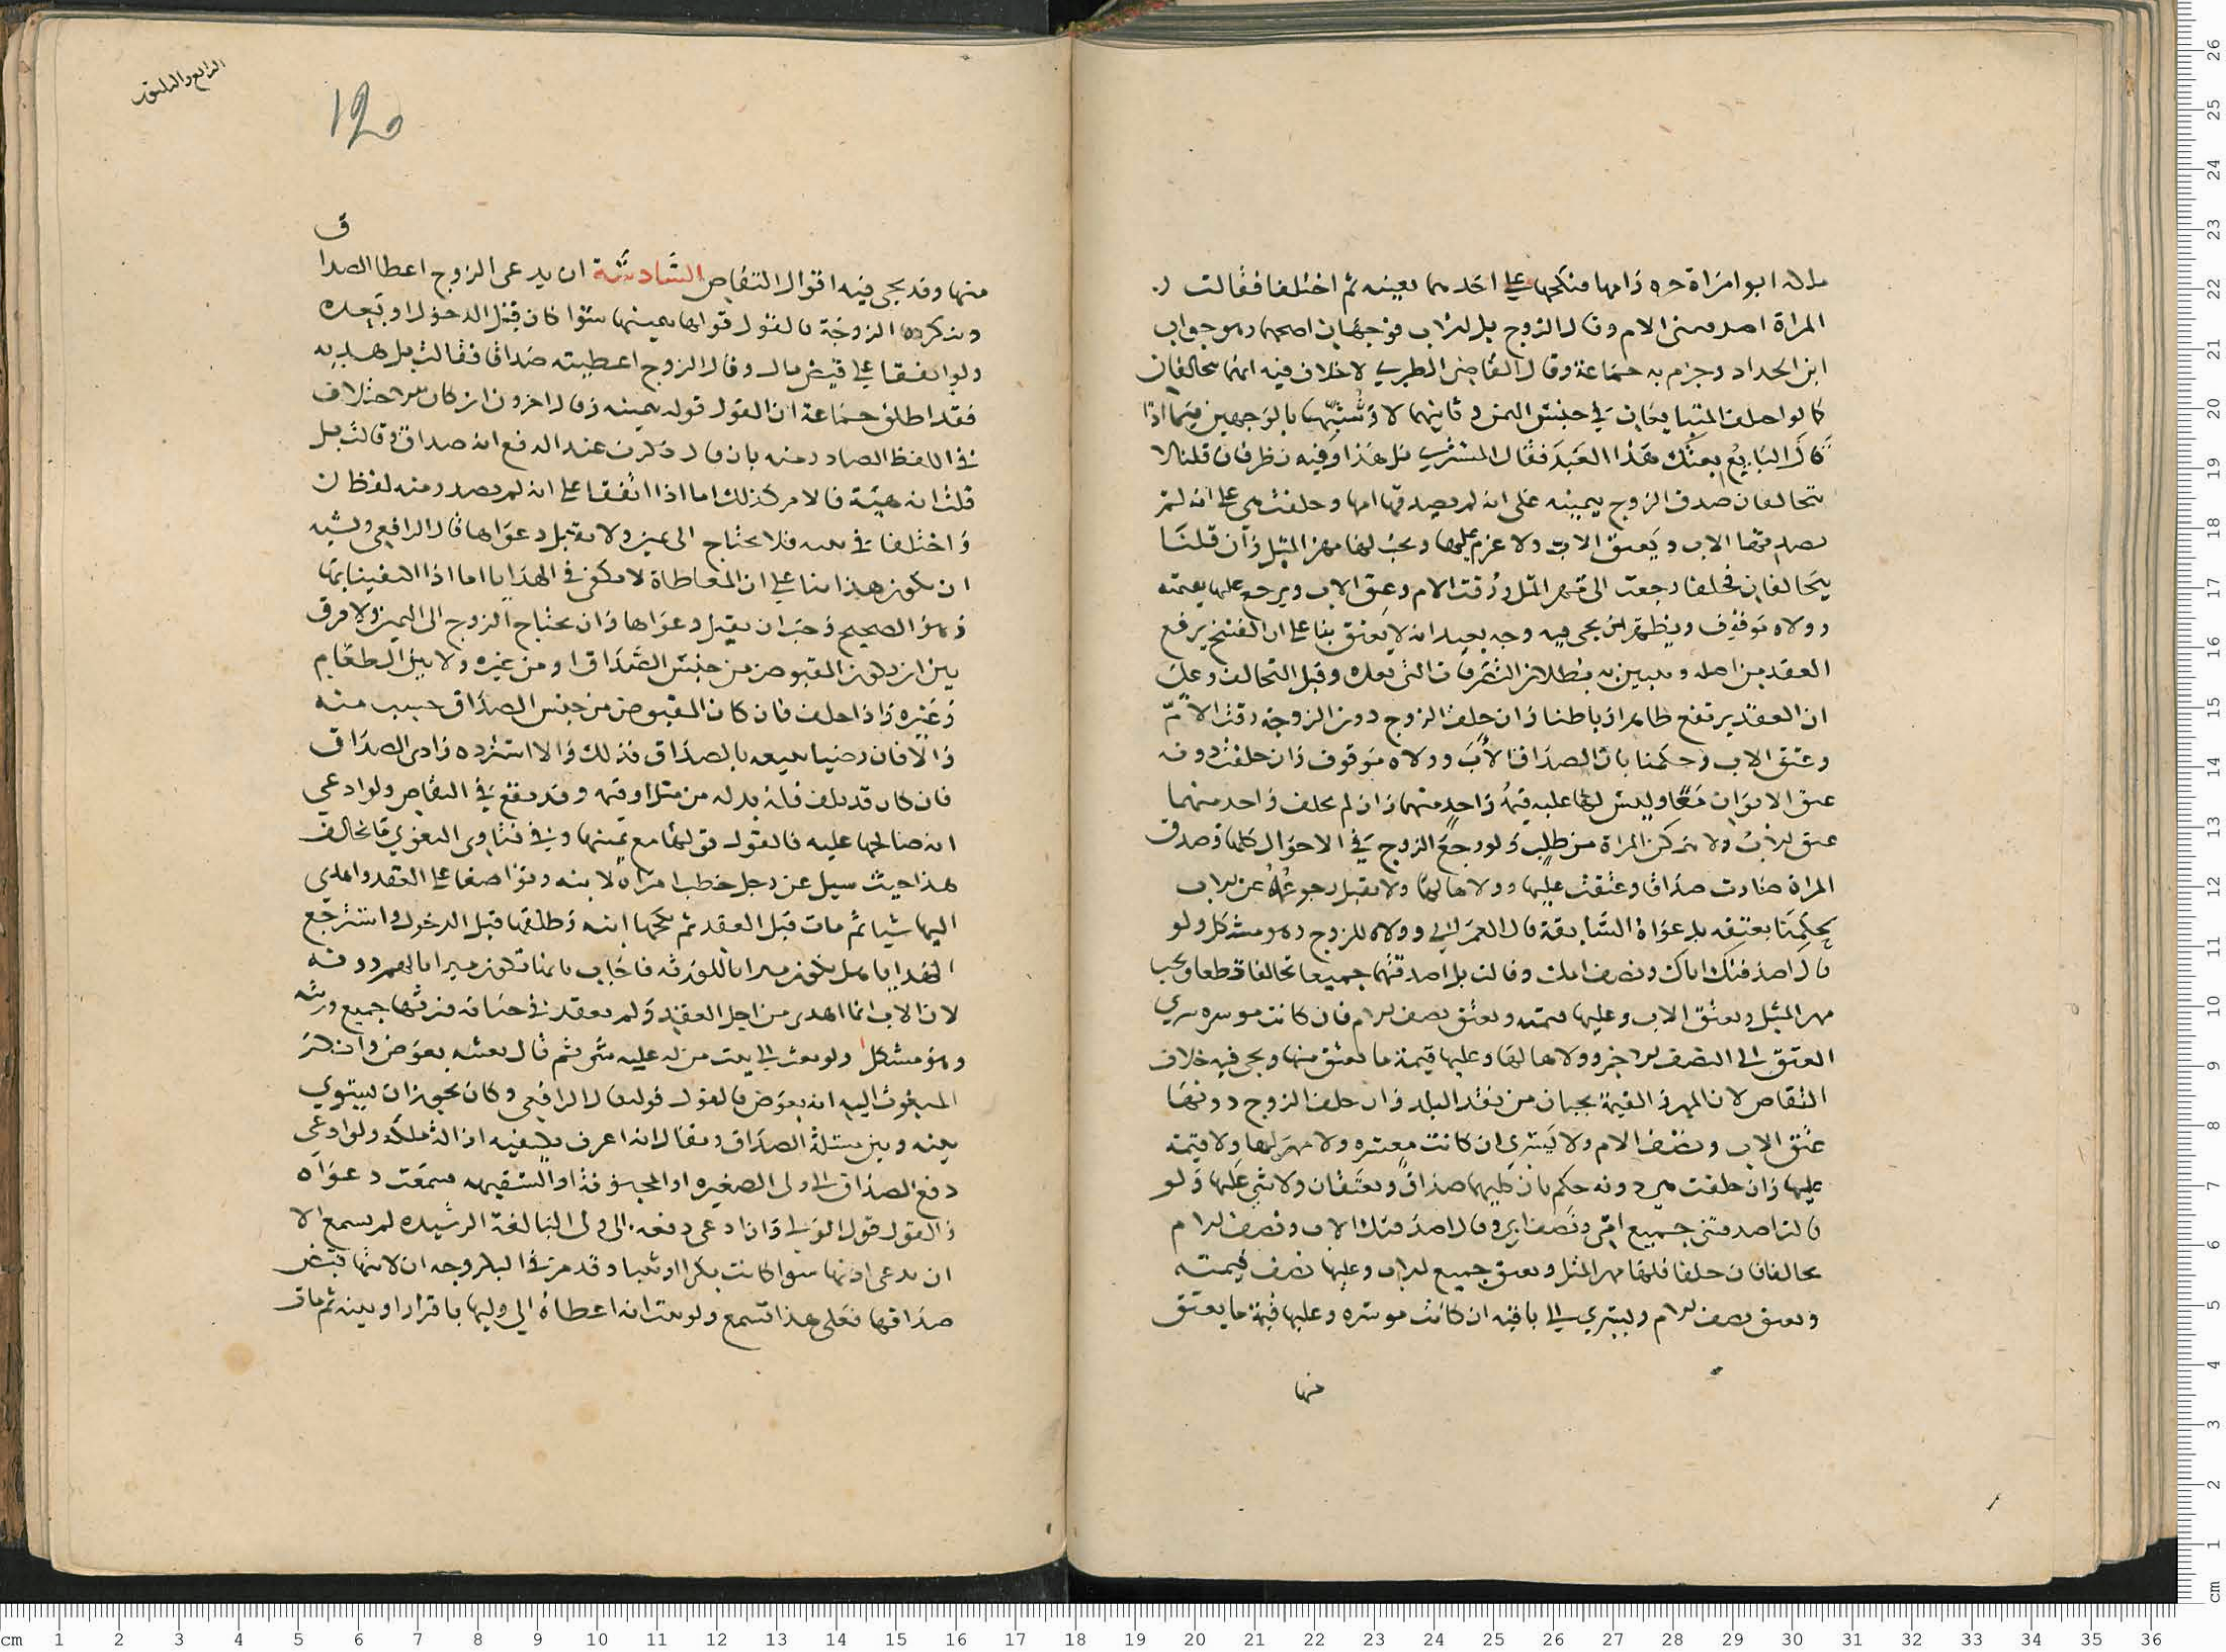 ملك ابو امراة حره وامها فنكحها على احدهما بعينه ثم اختلفا فقالت
المراة اصدقتني الام وقال الزوج بل الاب فوجهان اصحهما وهو جواب
ابن الحداد وجزم به جماعة وقال القاضي الطبري لا خلاف فيه انهما يتحالفان
كما لو اختلف المتبايعان في جنس الثمن وثانيهما لا وشبهها بالوجهين فيما اذا
قال البايع بعتك هذا العبد فقال المشتري بل هذا وفيه نظر فان قلنا لا
يتحالفان صدق الزوج بيمينه على انه لم يصدقها امها وحلفت هي على انه لم
يصدقها الاب ويعتق الاب ولا غرم عليها ويجب لها مهر المثل وان قلنا
يتحالفان فحلفا رجعت الى مهر المثل ورقت الام وعتق الاب ويرجع عليها بقيمته
وولاه موقوف ويظهر ان يجي فيه وجه بعيد انه لا يعتق بنا على ان الفسخ يرفع
العقد من اصله ويبين به بطلان التصرفات التي بعده وقبل التحالف وعلى
ان العقد يرتفع ظاهرا وباطنا وان حلف الزوج دون الزوجة رقت الام
وعتق الاب وحكمنا بان الصداق الاب وولاه موقوف وان حلفت دونه
عتق الابوان معا وليس لها عليه قيمة واحد منهما وان لم يحلف واحد منهما
عتق الاب ولا تمكن المراة من طلب ولو رجع الزوج في الاحوال كلها وصدق
المراة صارت صداقا وعتقت عليها وولاها لها ولا يقبل رجوعه عن الاب
بحكمنا بعتقه بدعواه السابقة قال العمراني وولاه للزوج وهو مشكل ولو
قال اصدقتك اباك ونصف امك وقالت بل اصدقتنيهما جميعا تحالفا قطعا ويجب
مهر المثل ويعتق الاب وعليها قيمته ويعتق نصف الام فان كانت موسره سري
العتق الى النصف الاخر وولاها لها وعليها قيمة ما يعتق منها ويجي فيه خلاف
التقاص لان المهر والقيمة يجبان من نقد البلد وان حلف الزوج دونها
عتق الاب ونصف الام ولا يسري ان كانت معسره ولا مهر لها ولا قيمة
عليها وان حلفت هي دونه حكم بان كليهما صداق ويعتقان ولا شي عليها ولو
قالت اصدقتني جميع امي ونصف ابي وقال اصدقتك الاب ونصف الام
تحالفا فان حلفا فلها مهر المثل ويعتق جميع الاب وعليها نصف قيمته
ويعتق نصف الام ويسري الى باقيه ان كانت موسره وعليها قيمة ما يعتق
منها
الرابع والثلثون
120
ق
منها وقد يجي فيه اقوال التقاص السادسة ان يدعي الزوج اعطا الصدا
وتنكره الزوجة فالقول قولها بيمينها سوا كان قبل الدخول او بعده
ولو اتفقا على قبض مال وقال الزوج اعطيته صداقا فقالت بل هديه
فقد اطلق جماعة ان القول قوله بيمينه وقال اخرون ان كان الاختلاف
في اللفظ الصادر منه بان قال ذكرت عند الدفع انه صداق وقالت بل
قلت انه هبة فالامر كذلك اما اذا اتفقا على انه لم يصدر منه لفظ
واختلفا في نيته فلا يحتاج الى يمين ولا تقبل دعواها قال الرافعي ويشبه
ان يكون هذا بنا على ان المعاطاة لا تكفي في الهدايا اما اذا اكتفينا بها
وهو الصحيح وجب ان تقبل دعواها وان يحتاج الزوج الى اليمين ولا فرق
بين ان يكون المقبوض من جنس الصداق او من غيره ولا بين الطعام
وغيره واذا حلف فان كان المقبوض من جنس الصداق حسب منه
والا فان رضيا ببيعه بالصداق فذلك والا استرده وادى الصداق
فان كان قد تلف فله بدله من مثل او قيمة وقد يقع في التقاص ولو ادعى
انه صالحها عليه فالقول قولها مع يمينها وفي فتاوى البغوي ما يخالف
هذا حيث سيل عن رجل خطب امراة لابنه وتواصفا على العقد واهدي
اليها شيا ثم مات قبل العقد ثم نكحها ابنه وطلقها قبل الدخول واسترجع
الهدايا هل يكون ميراثا للورثه فاجاب بانها تكون ميراثا لهم دونه
لان الاب انما اهدى من اجل العقد ولم يعقد في حياته فترثها جميع ورثته
وهو مشكل ولو بعث الى بيت من له عليه شي ثم قال بعثه بعوض وانكر
المبعوث اليه انه بعوض فالقول قوله قال الرافعي وكان يجوز ان يستوي
بينه وبين مسئلة الصداق ويقال انه اعرف بكيفيه ازالة ملكه ولو ادعى
دفع الصداق الى ولي الصغيره او المجنونة او السفيهه سمعت دعواه
والقول قول الولي وان ادعى دفعه الى ولي البالغة الرشيده لم تسمع الا
ان يدعي اذنها سوا كانت بكرا او ثيبا وقد مر في البكر وجه ان لابيها قبض
صداقها فعلى هذا تسمع ولو ثبت انه اعطاه الى وليها باقرار او بينه ثم مات